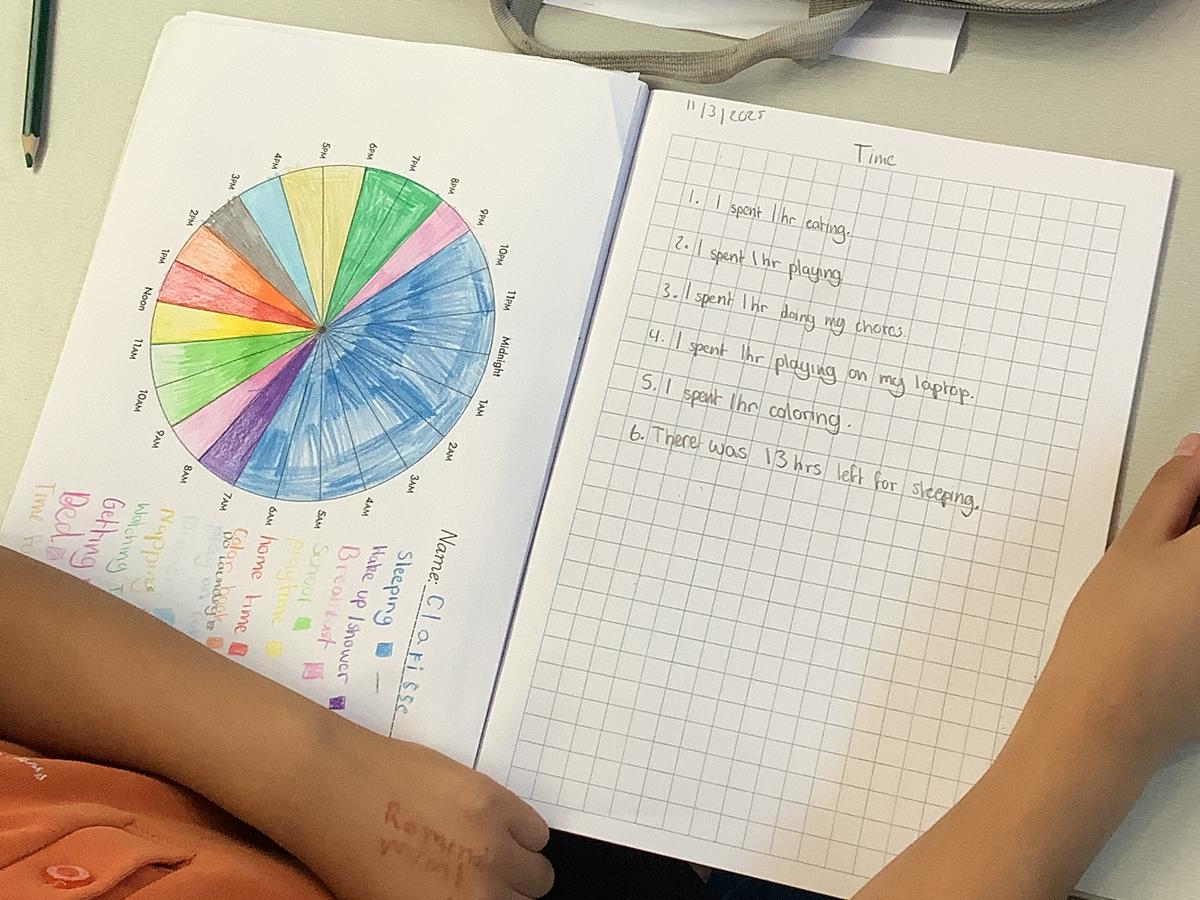 5PM
6PM
7PM
8PM
9PM
10PM
11PM
Midnight
1AM
2AM
3AM
4AM
5AM
6AM
7AM
8AM
9AM
10AM
11AM
Noon
1PM
2PM
3PM
4PM
Name: Clarisse
Sleeping
Wake up/shower
Breakfast
School
Playtime
home time
Color book
Napping
Watching T
Getting
Bed
Time
11/3/2025
Time
1. I spent 1hr eating.
2. I spent 1hr playing
3. I spent 1hr doing my chores.
4. I spent 1hr playing on my laptop.
5. I spent 1hr coloring.
6. There was 13hrs left for sleeping.